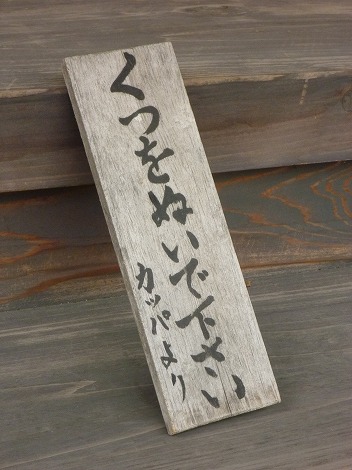 くつをぬいで下さい
カッパより